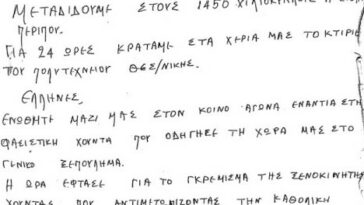 ΜΕΤΑΔΙΔΟΥΜΕ ΣΤΟΥΣ 1450
ΠΕΡΙΠΟΥ.
ΓΙΑ 24 ΩΡΕΣ ΚΡΑΤΑΜΕ ΣΤΑ ΧΕΡΙΑ ΜΑΣ ΤΟ ΚΤΙΡΙΟ
ΤΟΥ ΠΟΛΥΤΕΧΝΕΙΟΥ ΘΕΣ/ΝΙΚΗΣ.
ΕΛΛΗΝΕΣ,
ΕΝΩΘΗΤΕ ΜΑΖΙ ΜΑΣ ΣΤΟΝ ΚΟΙΝΟ ΑΓΩΝΑ ΕΝΑΝΤΙΑ ΣΤΗ
ΦΑΣΙΣΤΙΚΗ ΧΟΥΝΤΑ ΠΟΥ ΟΔΗΓΗΣΕ ΤΗ ΧΩΡΑ ΜΑΣ ΣΤΟ
ΓΕΝΙΚΟ ΞΕΠΟΥΛΗΜΑ.
Η ΩΡΑ ΕΦΤΑΣΕ ΓΙΑ ΤΟ ΓΚΡΕΜΙΣΜΑ ΤΗΣ ΞΕΝΟΚΙΝΗΤΗΣ
ΧΟΥΝΤΑΣ ΠΟΥ ΑΝΤΙΜΕΤΩΠΙΖΟΝΤΑΣ ΤΗΝ ΚΑΘΟΛΙΚΗ